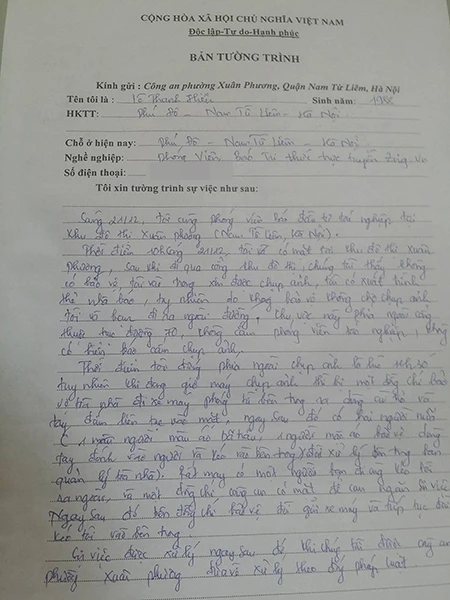 CỘNG HÒA XÃ HỘI CHỦ NGHĨA VIỆT NAM
Độc lập-Tự do-Hạnh phúc
BẢN TƯỜNG TRÌNH
Kính gửi : Công an phường Xuân Phương, Quận Nam Từ Liêm, Hà Nội
Tên tôi là : Thanh Hiếu Sinh năm: 1988
HKTT: Phú Đô - Nam Từ Liêm - Hà Nội
Chỗ ở hiện nay: Phú Đô - Nam Từ Liêm - Hà Nội
Nghề nghiệp: Phóng Viên Báo Tri thức trực tuyến Zing.vn
Số điện thoại:
Tôi xin tường trình sự việc như sau:
Sáng 21/12, tôi cùng phóng viên báo đến tác nghiệp tại
khu đô thị Xuân Phương (Nam Từ Liêm, Hà Nội).
Thời điểm 21/12, tôi có mặt tại khu đô thị Xuân
Phương, sau khi đi qua cổng khu đô thị, chúng tôi thấy không
có bảo vệ, tôi vào trong xin được chụp ảnh, tôi có xuất trình
thẻ nhà báo, tuy nhiên họ không cho chụp ảnh
tôi và đi ra ngoài đường. Khu vực này phía ngoài cũng
thuộc trục đường 70, không cấm phóng viên tác nghiệp, không
có biển báo cấm chụp ảnh.
Thời điểm tôi đứng phía ngoài chụp ảnh
tuy nhiên khi đang giơ máy chụp ảnh thì bị một đồng chí bảo
vệ đi xe máy phóng từ bên trong ra dùng
tay, đấm liên tục vào mặt, ngay sau đó có hai người nữa
(1 người màu áo, 1 người mặc áo bảo vệ dùng
tay đánh vào người và kéo vào bên trong
quản lý tòa nhà). Rất may có một người bạn đi cùng kéo tôi
ra ngoài, và một đồng chí công an có mặt để can ngăn
Ngay sau đó đồng chí bảo vệ đã gửi xe máy và tiếp tục
kéo tôi vào bên trong.
Sự việc được xử lý ngay sau đó khi chúng tôi được công an
phường Xuân Phương đưa về xử lý theo pháp luật